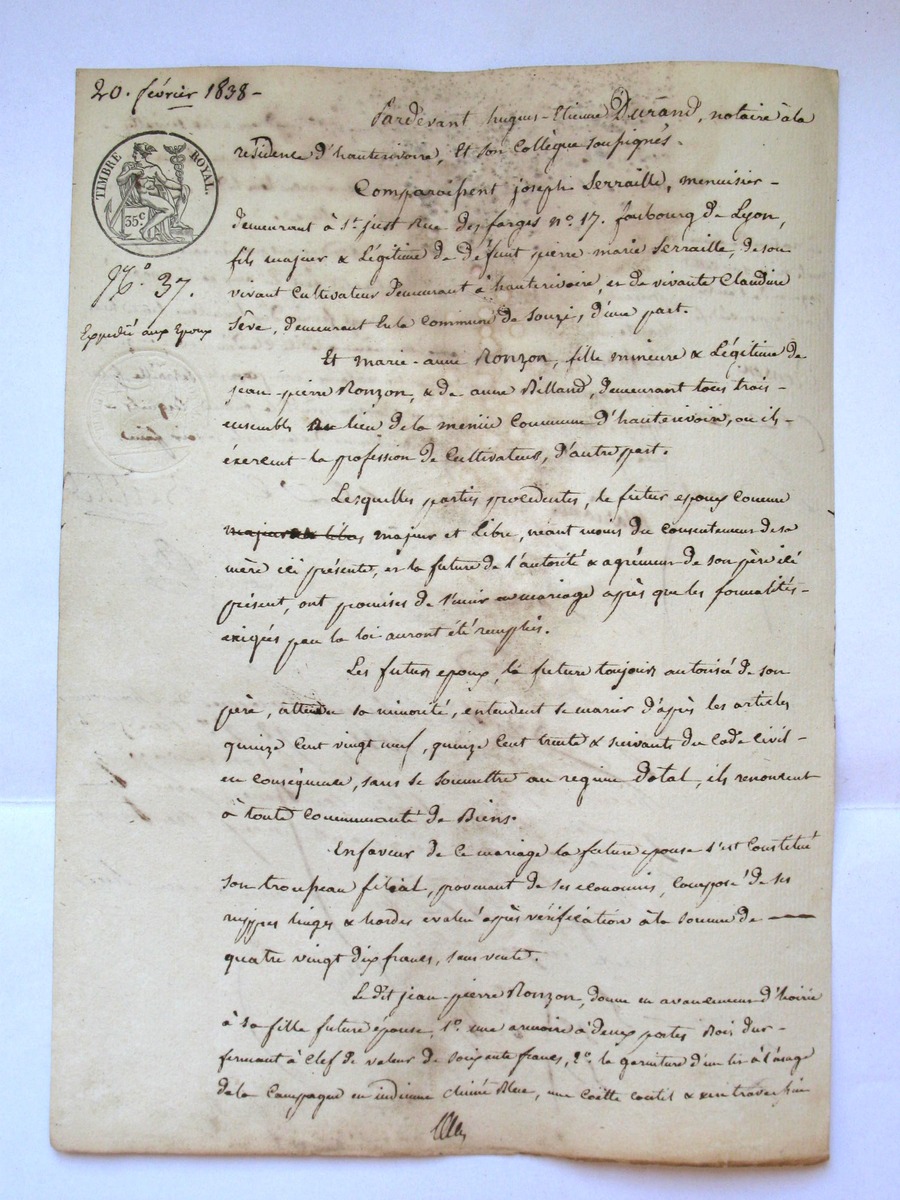 20. février 1838-
Pardevant hugues-Etienne Durand, notaire à la
résidence d'hauterivoire, et son Collègue soussignés.
TIMBRE ROYAL.
35c
Comparaissent joseph Serraille, menuisier-
demeurant à St. just Rue des farges no. 17. faubourg de Lyon,
fils majeur & Légitime de défunt pierre marie Serraille, de son
vivant Cultivateur demeurant à hauterivoire, et de vivante Claudine
Sève, demeurant En la Commune de Souzi, d'une part.
No. 37.
Expédié aux Epoux
Et marie-anne Ronzon, fille mineure & Légitime de
jean-pierre Ronzon, & de anne Billand, demeurant tous trois-
ensembles lieu de la même Commune d'hauterivoir, ou ils-
éxercent la profession de Cultivateurs, d'autre part.
Lesquelles parties procédentes, le futur epoux comme
majeur et Libre, néant moins du consentement de sa
mère ici présente, et la future de l'autorité & agrément de son père ici
présent, ont promises de s'unir en mariage après que les formalités-
exigées par la loi auront été remplies.
Les futurs epoux, la future toujours autorisée de son
père, attendu sa minorité, entendent se marier d'après les articles
quinze Cent vingt neuf, quinze Cent trente & suivants du Code Civil-
en conséquence, sans se soumettre au regime dotal, ils renoncent
à toute Communauté de Biens.
En faveur de ce mariage la future epouse s'est Constitué
son trousseau filial, provenant de ses economies, Composé de ses
nippes linges & hardes evalué après vérification à la somme de
quatre vingt dix francs, sans vente.
Le dit jean-pierre Ronzon, donne en avancement d'hoirie
à sa fille future epouse, 1o. une armoire à deux portes Bois dur-
fermant à Clef de valeur de soixente francs, 2o. la garniture d'un lit à l'usage
de la Campagne en indienne chinée Bleue, une Coëtte coutil & un traversin